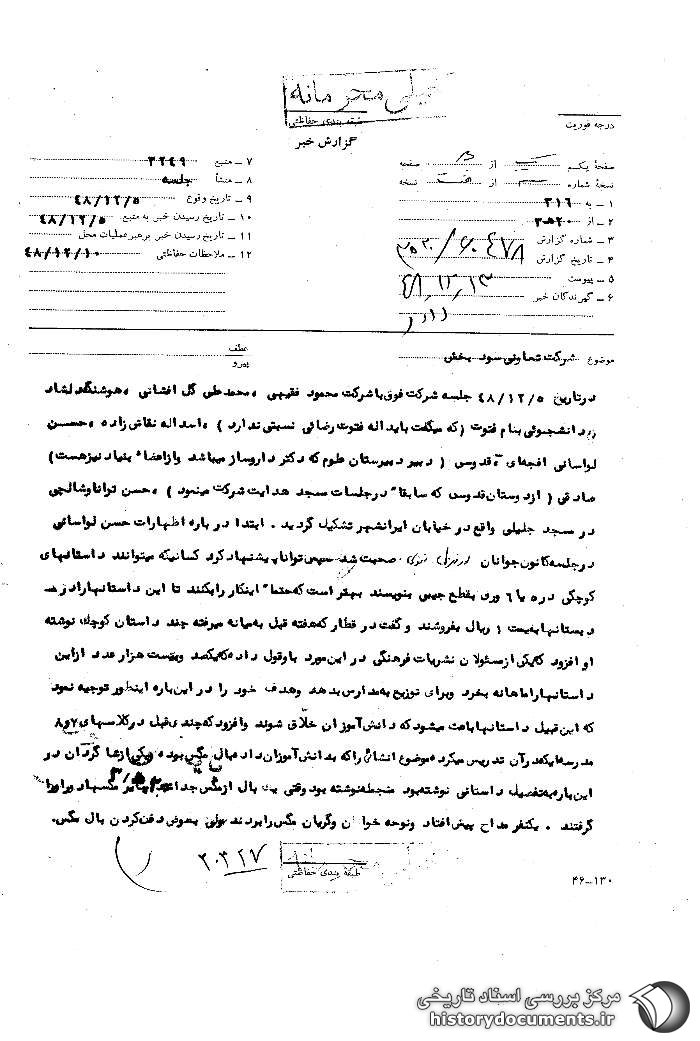 خیلی محرمانه
طبقه بندی حفاظتی
گزارش خبر
درجه فوریت
صفحه یکم از صفحه
نسخه شماره از نسخه
۱ ـ به ۳۱۶
۲ ـ از ۲۰ه۳
۳ ـ شماره گزارش
۴ ـ تاریخ گزارش ۴۸/۱۲/۱۳
۵ ـ پیوست
۶ ـ گیرندگان خبر
۷ ـ منبع ۳۲۴۹
۸ ـ منشأ جلسه
۹ ـ تاریخ وقوع ۴۸/۱۲/۵
۱۰ ـ تاریخ رسیدن خبر به منبع ۴۸/۱۲/۵
۱۱ ـ تاریخ رسیدن خبر برهبر عملیات محل
۱۲ ـ ملاحظات حفاظتی ۴۸/۱۲/۱۰
موضوع شرکت تعاونی سود بخش
عطف
پیرو
درتاریخ ۴۸/۱۲/۵ جلسه شرکت فوق با شرکت محمود فقیهی ، محمدعلی گل افشانی ، هوشنگ دلشاد
دانشجوئی بنام فتوت (که میگفت با یداله فتوت رضائی نسبتی ندارد) ، اسداله نقاش زاده ، حسن
لواسانی افجه‌ای ، قدوسی (دبیر دبیرستان علوم که دکتر داروساز میباشد وازاعضاء بنیاد نیزهست)
صادقی (ازدوستان قدوسی که سابقاً درجلسات مسجد هدایت شرکت مینمود) ، حسن توانا وشالچی
در مسجد جلیلی واقع در خیابان ایرانشهر تشکیل گردید . ابتدا درباره اظهارات حسن لواسانی
درجلسه کانون جوانان صحبت شد سپس توانا پیشنهاد کرد کسانیکه میتوانند داستانهای
کوچکی در ۵ یا ۶ ورق بقطع جیبی بنویسند بهتر است که حتماً اینکار رابکنند تا این داستانهارا در
دبستانها بقیمت ۱ ریال بفروشند و گفت در قطار که هفته قبل به میانه میرفته چند داستان کوچک نوشته
او افزود که یکی ازمسئولان نشریات فرهنگی در این مورد باوقول داده که یکصد وبیست هزار عدد ازاین
داستانهارا ماهانه بخرد وبرای توزیع به مدارس بدهد وهدف خود را در این باره اینطور توجیه نمود
که این قبیل داستانها باعث میشود که دانش آموزان خلاق شوند وافزود که چندی قبل درکلاسهای ۷و۸
مدرسه ایکه در آن تدریس میکرده موضوع انشائی راکه بدانش آموزان داده بال مگس بوده ویکی ازشاگردان در
این باره به تفصیل داستانی نوشته بود منجمله نوشته بود وقتی یک بال ازمگس جدا
گرفتند . یکنفر مداح پیش افتاد ونوحه خوان وگریان مگس رابردند ولی بعوض دفن کردن بال مگس.
۲۰۳۲۷
طبقه بندی حفاظتی
۴۶-۱۳۰
مرکز بررسی اسناد تاریخی
historydocuments.ir